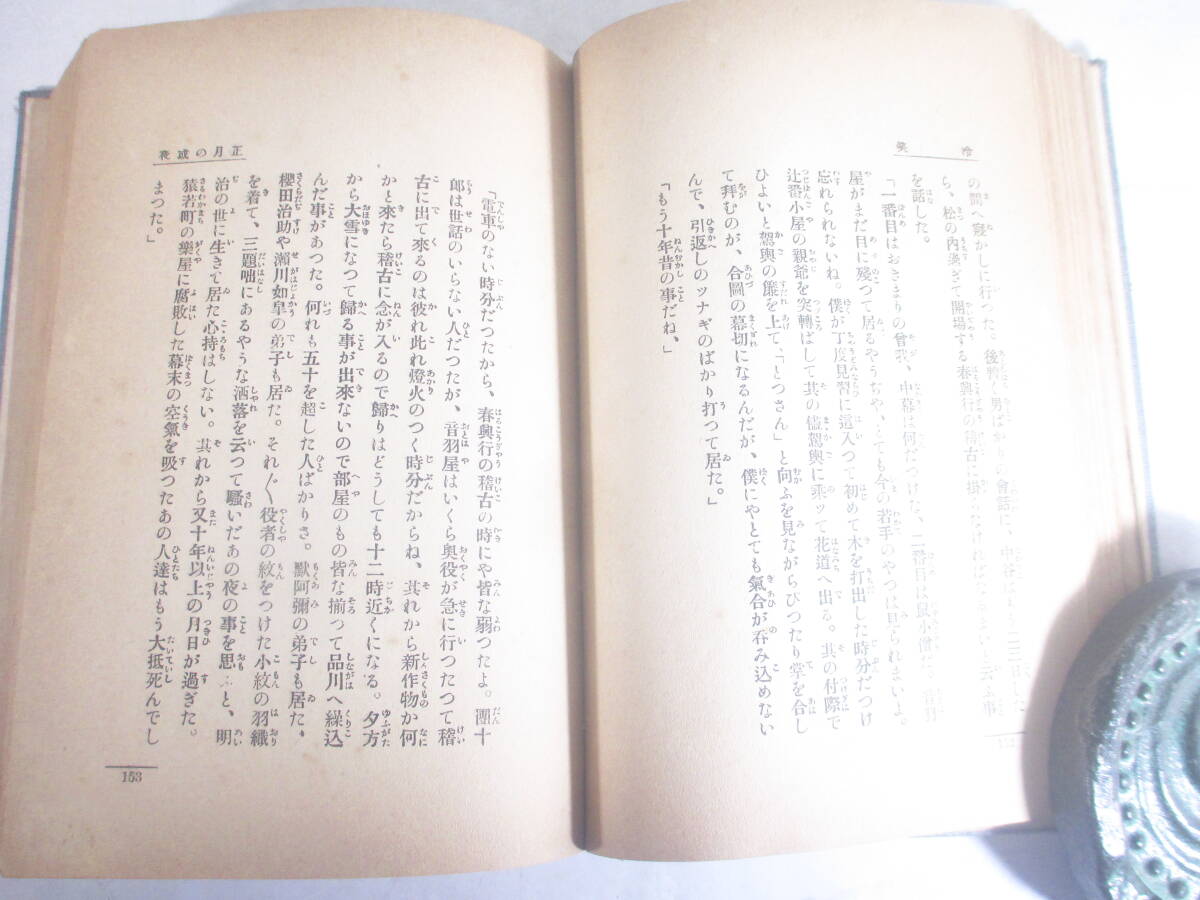 冷笑
の間へ寢かしに行つた。後は男ばかりの會話に、中谷はもう二三日した
ら、松の內過ぎて開場する春興行の稽古に掛らなければならないと云ふ事
を話した。
「一番目はおきまりの曾我、中幕は何だつけな、二番目は鼠小僧だ。音羽
屋がまだ目に殘つて居るやうぢや、とても今の若手のやつは見られまいよ。
忘れられないね。僕が丁度見習に這入つて初めて木を打出した時分だつけ
辻番小屋の親爺を突轉ばして其の儘駕輿に乘ッて花道へ出る。其の付際で
ひよいと駕輿の簾を上て、「とつさん」と向ふを見ながらぴつたり掌を合し
て拜むのが、合圖の幕切になるんだが、僕にやとても氣合が呑み込めない
んで、引返しのツナギのばかり打つて居た。」
「もう十年昔の事だね、」
152
正月の或夜
「電車のない時分だつたから、春興行の稽古の時にや皆な弱つたよ。團十
郞は世話のいらない人だつたが、音羽屋はいくら奧役が急に行つたつて稽
古に出て來るのは彼れ此れ燈火のつく時分だからね、其れから新作物か何
かと來たら稽古に念が入るので歸りはどうしても十二時近くになる。夕方
から大雪になつて歸る事が出來ないので部屋のもの皆な揃つて品川へ繰込
んだ事があつた。何れも五十を超した人ばかりさ。默阿彌の弟子も居た、
櫻田治助や瀨川如皐の弟子も居た。それ〴〵役者の紋をつけた小紋の羽織
を着て、三題咄にあるやうな洒落を云つて騷いだあの夜の事を思ふと、明
治の世に生きて居た心持はしない。其れから又十年以上の月日が過ぎた。
猿若町の樂屋に腐敗した幕末の空氣を吸つたあの人達はもう大抵死んでし
まつた。」
153